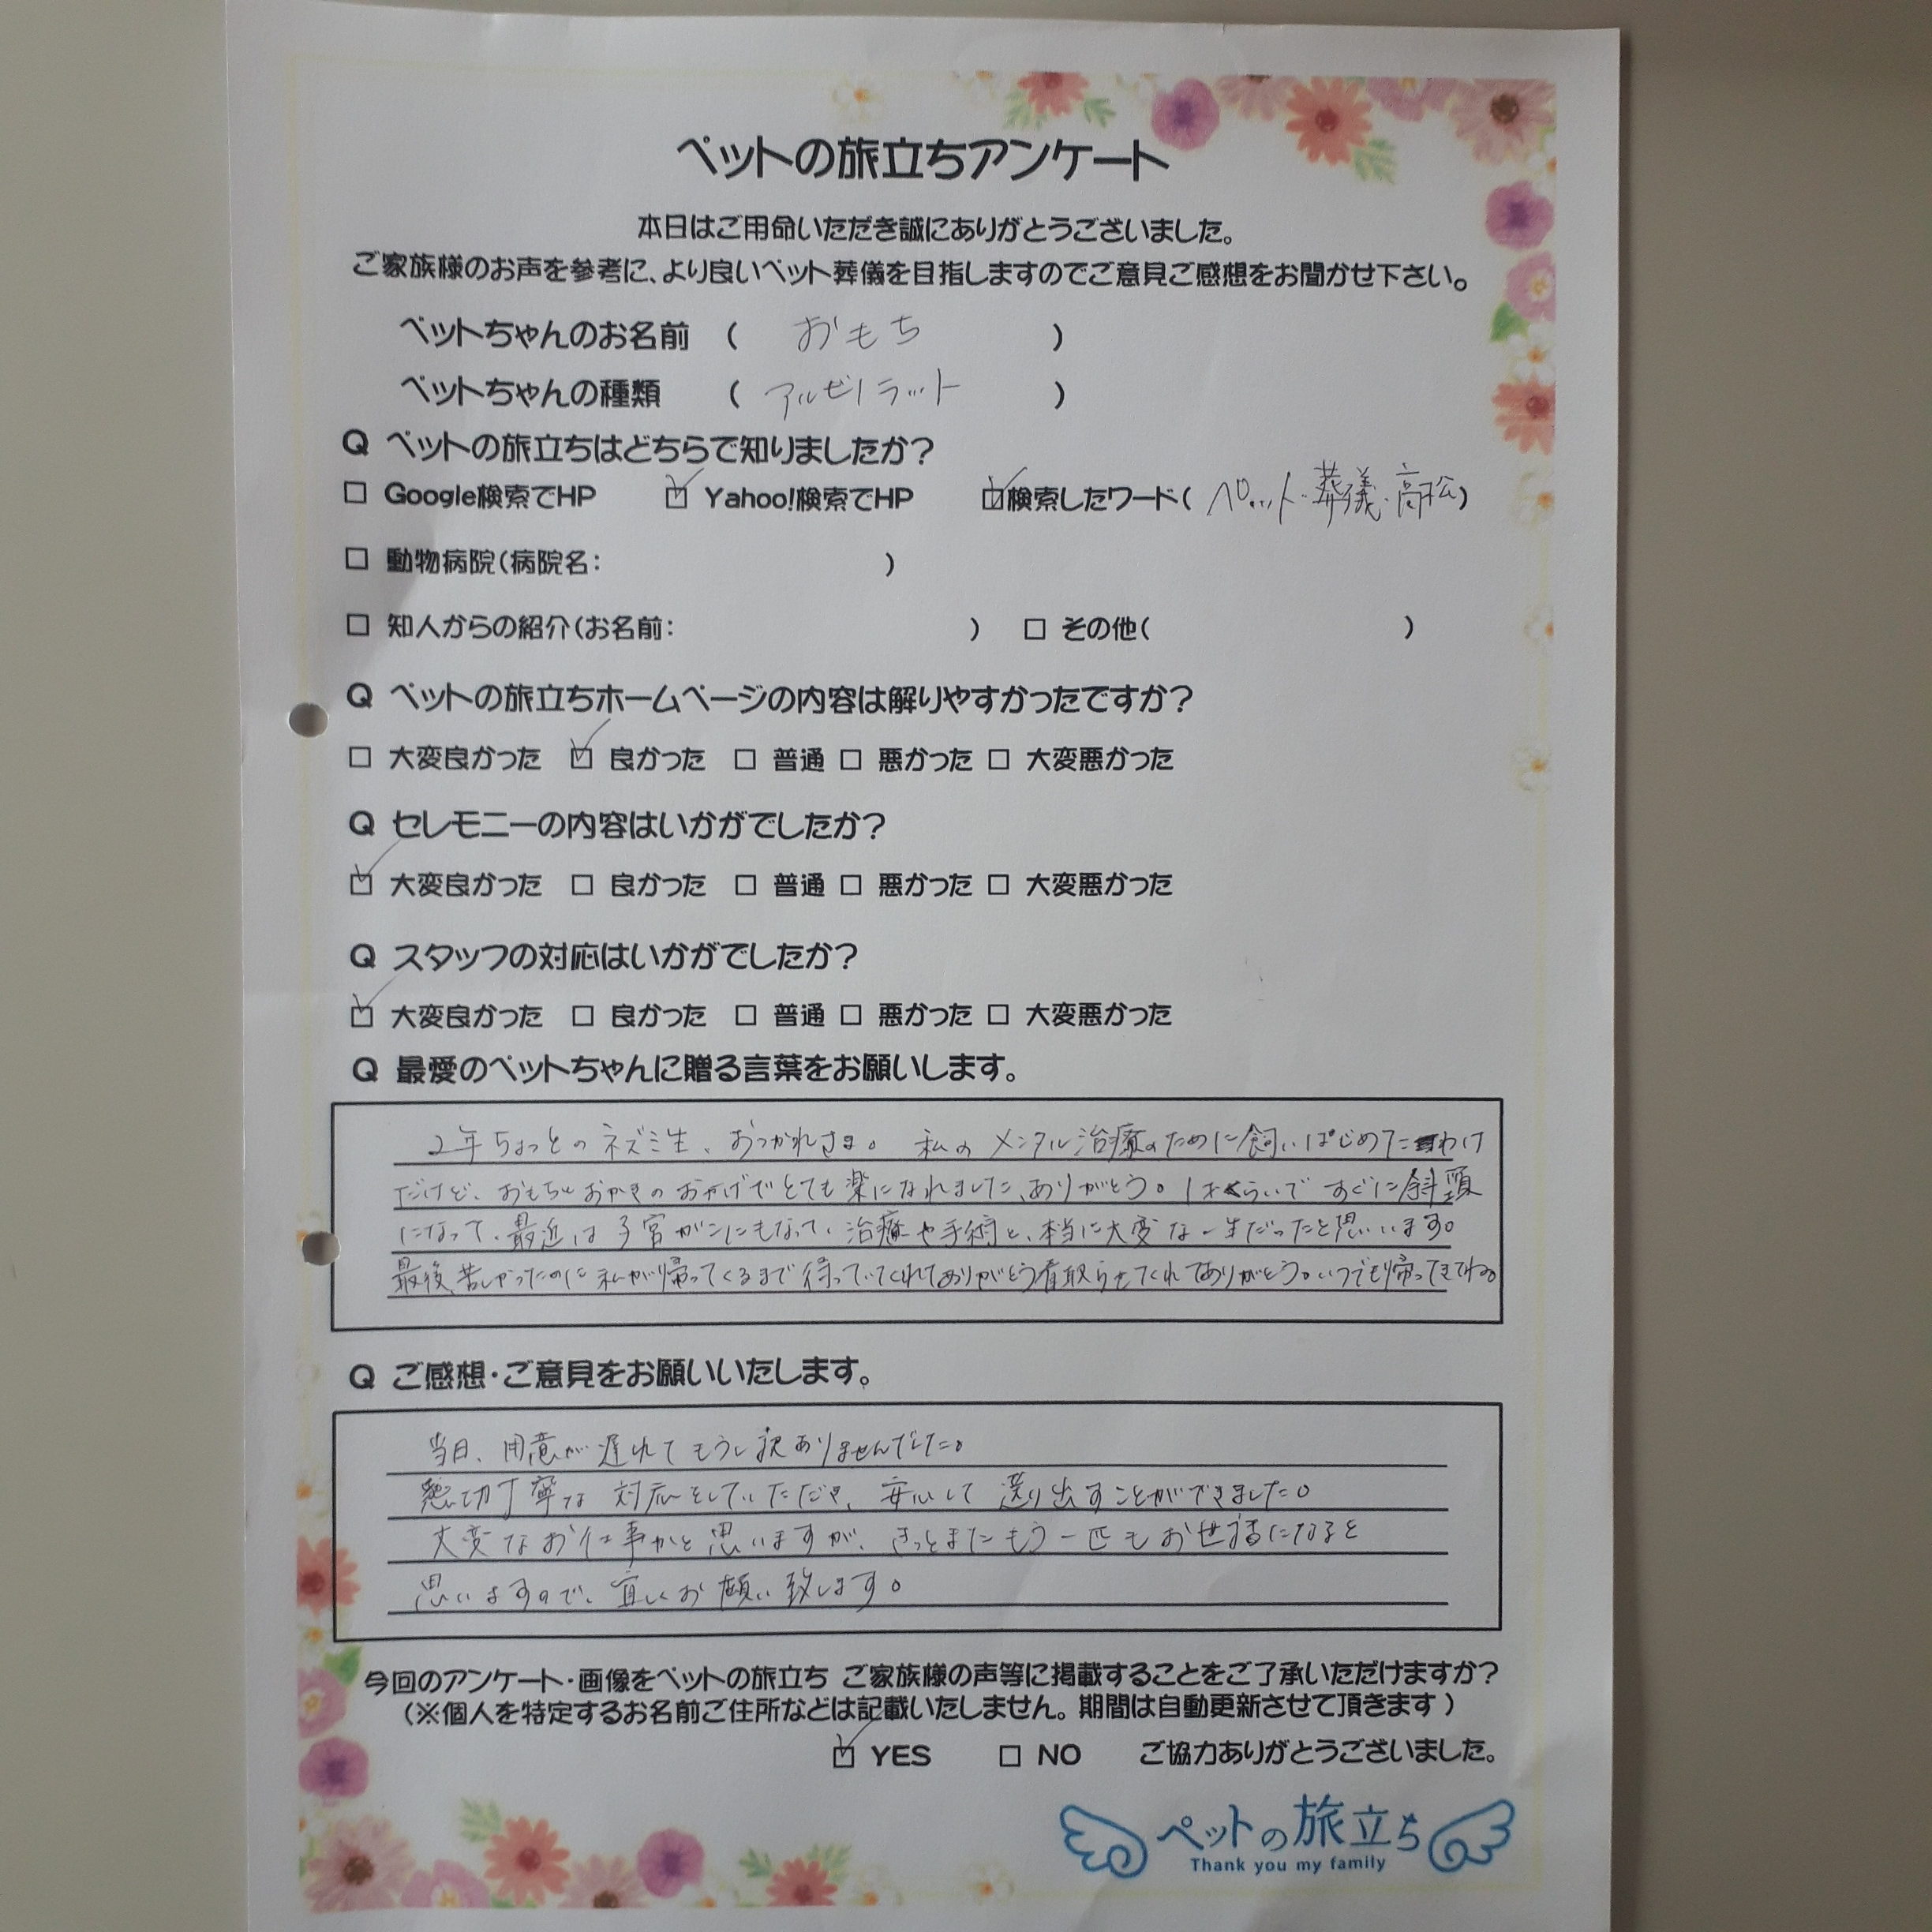 ペットの旅立ちアンケート
本日はご用命いただき誠にありがとうございました。
ご家族様のお声を参考に、より良いペット葬儀を目指しますのでご意見ご感想をお聞かせ下さい。
ペットちゃんのお名前 ( おもち )
ペットちゃんの種類 ( アルビノラット )
Q ペットの旅立ちはどちらで知りましたか?
□ Google検索でHP ☑ Yahoo!検索でHP ☑検索したワード( ペット・葬儀・高松)
□ 動物病院(病院名: )
□ 知人からの紹介(お名前: ) □ その他( )
Q ペットの旅立ちホームページの内容は解りやすかったですか?
□ 大変良かった ☑ 良かった □ 普通 □ 悪かった □ 大変悪かった
Q セレモニーの内容はいかがでしたか?
☑ 大変良かった □ 良かった □ 普通 □ 悪かった □ 大変悪かった
Q スタッフの対応はいかがでしたか?
☑ 大変良かった □ 良かった □ 普通 □ 悪かった □ 大変悪かった
Q 最愛のペットちゃんに贈る言葉をお願いします。
2年ちょっとのネズミ生、おつかれさま。私のメンタル治療のために飼いはじめたわけ
だけど、おもちとおかきのおかげでとても楽になれました、ありがとう。1才くらいですぐに斜頸
になって、最近は子宮がんにもなって、治療や手術と、本当に大変な一生だったと思います。
最後、苦しかったのに私が帰ってくるまで待っていてくれてありがとう看取らせてくれてありがとう。いつでも帰ってきてね。
Q ご感想・ご意見をお願いいたします。
当日、用意が遅れてもうし訳ありませんでした。
懇切丁寧な対応をしていただき、安心して送り出すことができました。
大変なお仕事かと思いますが、きっとまたもう一匹もお世話になると
思いますので、宜しくお願い致します。
今回のアンケート・画像をペットの旅立ち ご家族様の声等に掲載することをご了承いただけますか?
(※個人を特定するお名前ご住所などは記載いたしません。期間は自動更新させて頂きます)
☑ YES □ NO ご協力ありがとうございました。
ペットの旅立ち
Thank you my family